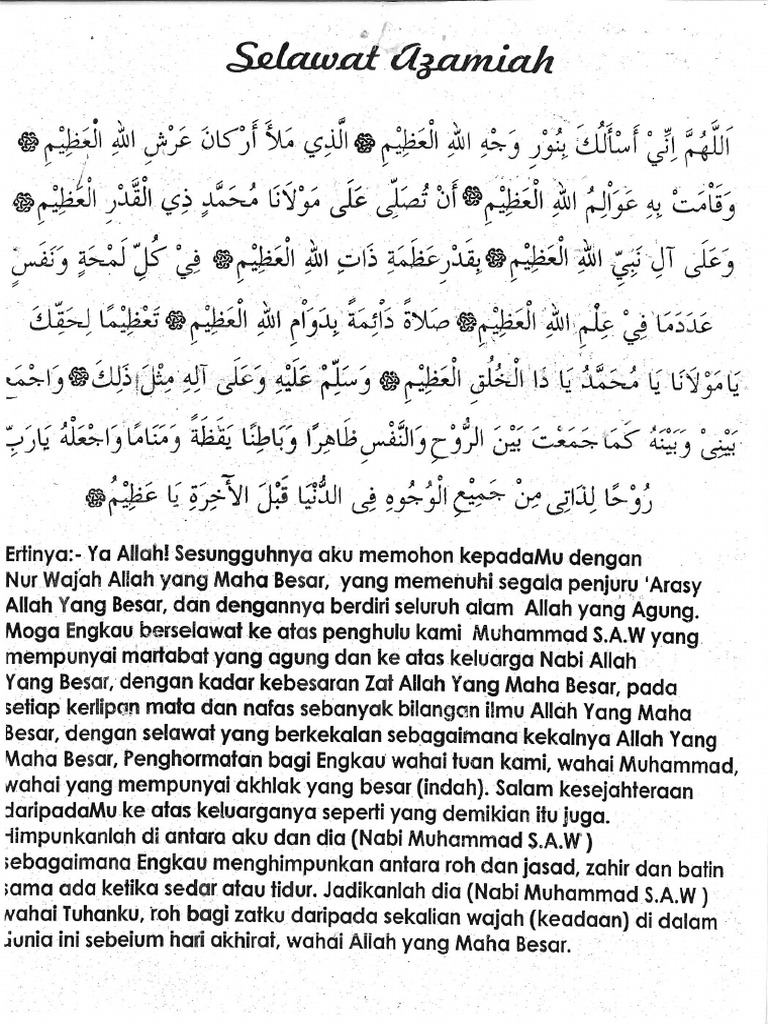 Selawat Azamiah
اَللَّهُمَّ اِنِّيْ أَسْأَلُكَ بِنُوْرِ وَجْهِ اللهِ الْعَظِيْمِ ۞ الَّذِي مَلأَ أَرْكَانَ عَرْشِ اللهِ الْعَظِيْمِ ۞
وَقَامَتْ بِهِ عَوَالِمُ اللهِ الْعَظِيْمِ ۞ أَنْ تُصَلِّى عَلَى مَوْلَانَا مُحَمَّدٍ ذِي الْقَدْرِ الْعَظِيْمِ ۞
وَعَلَى آلِ نَبِيِّ اللهِ الْعَظِيْمِ ۞ بِقَدْرِ عَظَمَةِ ذَاتِ اللهِ الْعَظِيْمِ ۞ فِيْ كُلِّ لَمْحَةٍ وَنَفَسٍ
عَدَدَمَا فِيْ عِلْمِ اللهِ الْعَظِيْمِ ۞ صَلاَةً دَائِمَةً بِدَوَامِ اللهِ الْعَظِيْمِ ۞ تَعْظِيْمًا لِحَقِّكَ
يَا مَوْلَانَا يَا مُحَمَّدُ يَا ذَا الْخُلُقِ الْعَظِيْمِ ۞ وَسَلِّمْ عَلَيْهِ وَعَلَى آلِهِ مِثْلَ ذَلِكَ ۞ وَاجْمَع
بَيْنِىْ وَبَيْنَهُ كَمَا جَمَعْتَ بَيْنَ الرُّوْحِ وَالنَّفْسِ ظَاهِرًا وَبَاطِنًا يَقَظَةً وَمَنَامًا وَاجْعَلْهُ يَارَبِّ
رُوْحًا لِذَاتِى مِنْ جَمِيْعِ الْوُجُوهِ فِى الدُّنْيَا قَبْلَ الْأَخِرَةِ يَا عَظِيْمُ ۞
Ertinya:- Ya Allah! Sesungguhnya aku memohon kepadaMu dengan
Nur Wajah Allah yang Maha Besar, yang memenuhi segala penjuru 'Arasy
Allah Yang Besar, dan dengannya berdiri seluruh alam Allah yang Agung.
Moga Engkau berselawat ke atas penghulu kami Muhammad S.A.W yang
mempunyai martabat yang agung dan ke atas keluarga Nabi Allah
Yang Besar, dengan kadar kebesaran Zat Allah Yang Maha Besar, pada
setiap kerlipan mata dan nafas sebanyak bilangan ilmu Allah Yang Maha
Besar, dengan selawat yang berkekalan sebagaimana kekalnya Allah Yang
Maha Besar, Penghormatan bagi Engkau wahai tuan kami, wahai Muhammad,
wahai yang mempunyai akhlak yang besar (indah). Salam kesejahteraan
daripadaMu ke atas keluarganya seperti yang demikian itu juga.
Himpunkanlah di antara aku dan dia (Nabi Muhammad S.A.W )
sebagaimana Engkau menghimpunkan antara roh dan jasad, zahir dan batin
sama ada ketika sedar atau tidur. Jadikanlah dia (Nabi Muhammad S.A.W )
wahai Tuhanku, roh bagi zatku daripada sekalian wajah (keadaan) di dalam
dunia ini sebelum hari akhirat, wahai Allah yang Maha Besar.